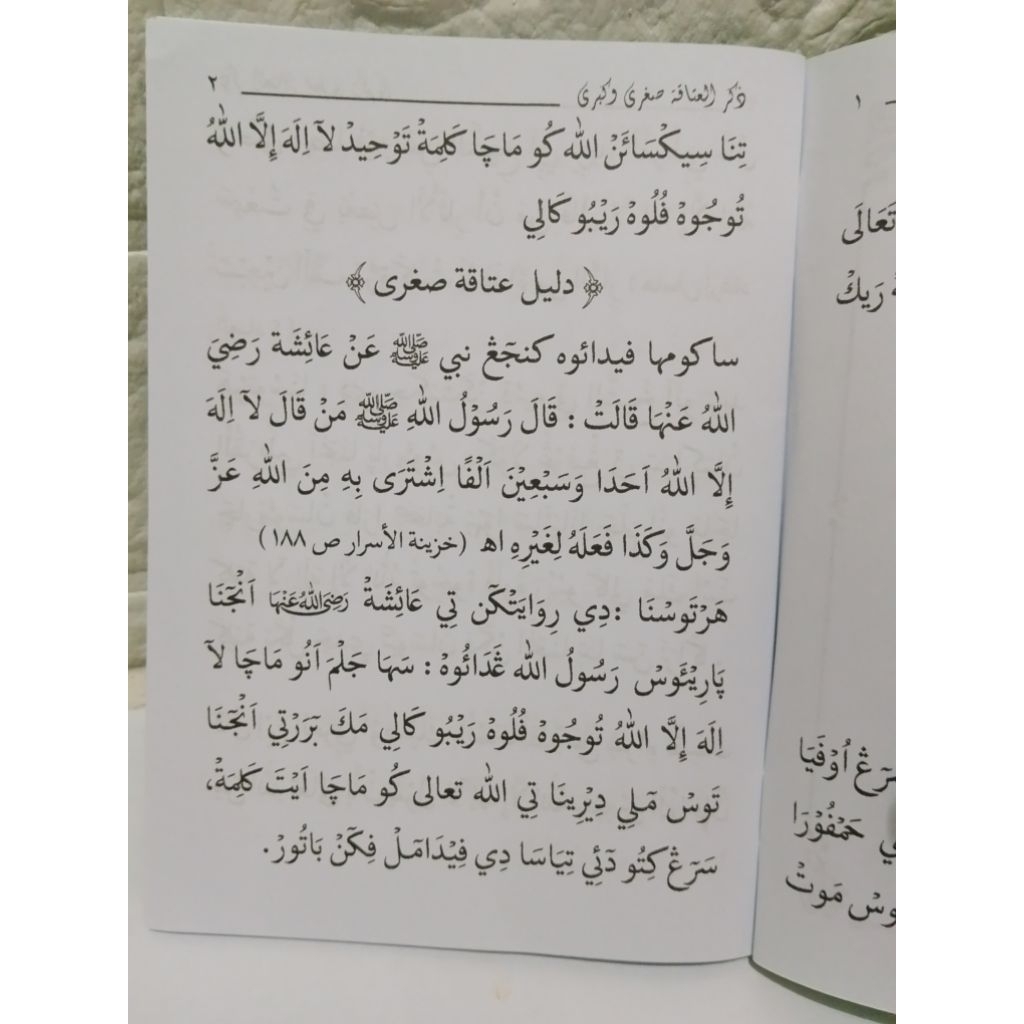 ذكر العتاقة صغرى وكبرى ٢
تِنَا سِيكْسَائَنْ الله كُو مَاچَا كَلِمَةْ تَوْحِيدْ لَآ اِلَهَ إِلَّا اللهُ
تُوجُوهْ فُلُوهْ رَيْبُو كَالِي
﴿ دليل عتاقة صغرى ﴾
ساكومها فيدائوه كنجڠ نبي ﷺ عَنْ عَائِشَة رَضِيَ
اللهُ عَنْهَا قَالَتْ : قَالَ رَسُوْلُ اللهِ ﷺ مَنْ قَالَ لَآ اِلَهَ
إِلَّا اللهُ اَحَدَا وَسَبْعِيْنَ اَلْفًا اِشْتَرَى بِهِ مِنَ اللهِ عَزَّ
وَجَلَّ وَكَذَا فَعَلَهُ لِغَيْرِهِ اھ (خزينة الأسرار ص ١٨٨)
هَرْتَوسْنَا : دِي رِوَايَتْكَن تِي عَائِشَةْ رَضِيَ اللهُ عَنْهَا اَنْجَنَا
پَارِيْئَوسْ رَسُولُ الله ڠَدَائُوهْ : سَهَا جَلْمَ اَنُو مَاچَا لَآ
اِلَهَ إِلَّا اللهُ تُوجُوهْ فُلُوهْ رَيْبُو كَالِي مَكَ بَرَرْتِي اَنْجَنَا
تَوسْ مَلِي دِيْرِينَا تِي الله تعالى كُو مَاچَا اَيْتَ كَلِمَةْ،
سَرَڠ كِتُو دَئِي تِيَاسَا دِي فِيْدَامَلْ فِكَنْ بَاتُورْ.
١
تَعَالَى
رَيكْ
سَرَڠ اُوْفَيَا
حَمْفُوْرَا
مَوتْ